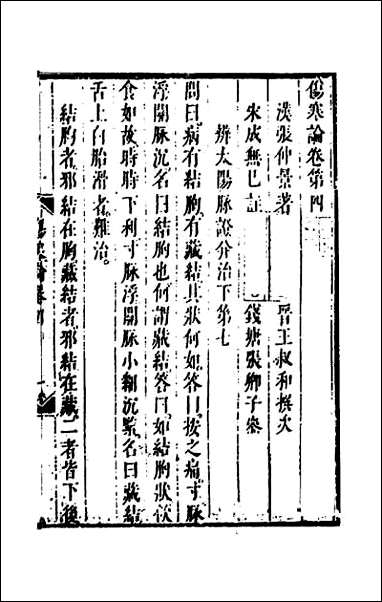 傷寒論卷第四
漢張仲景著　晉王叔和撰次
宋成無已註　錢塘張卿子參
辨太陽脉證并治下第七
問曰病有結胸有藏結其狀何如答曰按之痛寸脉
浮關脉沉名曰結胸也何謂藏結答曰如結胸狀飲
食如故時時下利寸脉浮關脉小細沉緊名曰藏結
舌上白胎滑者難治
結胸者邪結在胸藏結者邪結在藏二者皆下後